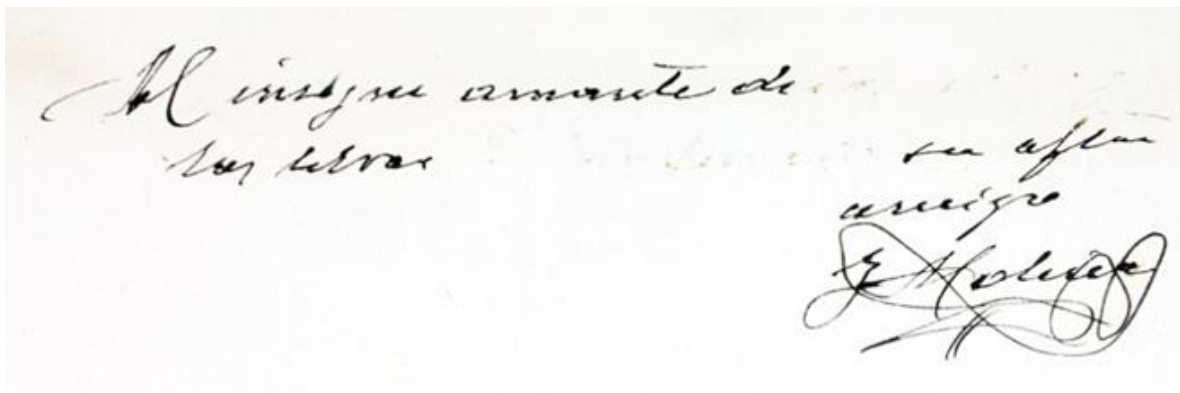 Al insigne amante de
las letras
su afmo
amigo
E Molina